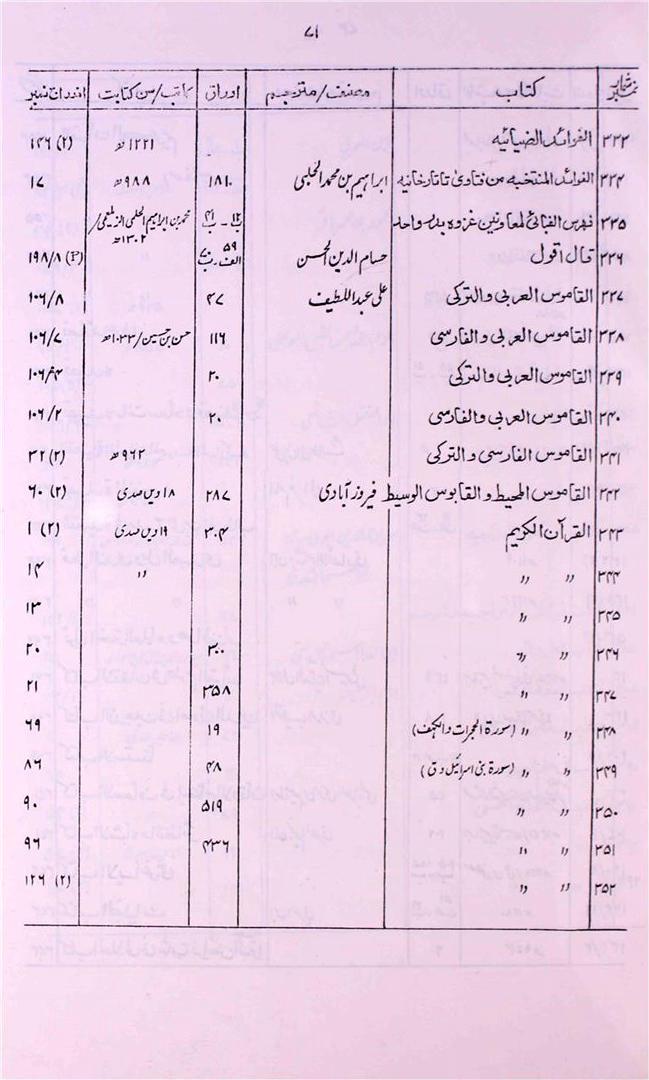 ۷۱
نمبر شمار کتاب مصنف/مترجم اوراق کاتب/سن کتابت اندراج نمبر
۲۳۳ الفوائد الضیائیه ۱۲۲۱ھ (۲) ۱۴۶
۲۳۴ الفوائد المنتخبه من فتاویٰ تاتارخانیه ابراہیم بن محمد الحلبی ۱۸۱ ۹۸۸ھ ۱۷
۲۳۵ فہرس القبائل لمعاونین غزوه بدر واحد محمد بن ابراہیم الحلمی /۱۳۰۲ھ
۲۳۶ قال اقول حسام الدین الحسن ۵۹ الف - ب (۳) ۱۹۸/۸
۲۳۷ القاموس العربی والترکی علی عبداللطیف ۴۷ ۱۰۶/۸
۲۳۸ القاموس العربی والفارسی ۱۱۶ حسن بن حسین/۱۰۳۳ھ ۱۰۶/۷
۲۳۹ القاموس العربی والترکی ۲۰ ۱۰۶/۴
۲۴۰ القاموس العربی والفارسی ۲۰ ۱۰۶/۲
۲۴۱ القاموس الفارسی والترکی ۹۶۲ھ (۲) ۳۲
۲۴۲ القاموس المحیط والقابوس الوسیط فیروزآبادی ۲۸۷ ۱۸ ویں صدی (۲) ۶۰
۲۴۳ القرآن الکریم ۳۰۴ ۱۹ ویں صدی (۲) ۱
۲۴۴ " " " ۱۴
۲۴۵ " " ۱۳
۲۴۶ " " ۳۰۰ ۲۰
۲۴۷ " " ۳۵۸ ۲۱
۲۴۸ " " (سورة الحجرات والکہف) ۱۹ ۶۹
۲۴۹ " " (سورة بنی اسرائیل و ق) ۴۸ ۸۶
۲۵۰ " " ۵۱۹ ۹۰
۲۵۱ " " ۴۳۶ ۹۶
۲۵۲ " " (۲) ۱۲۶